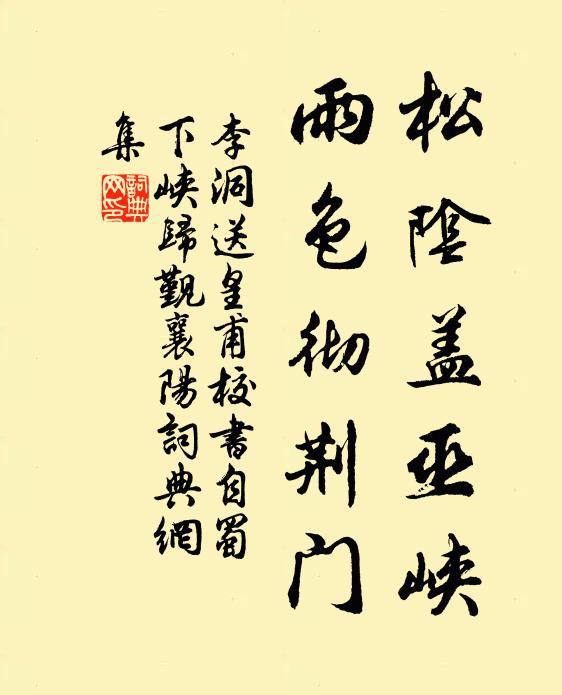 松陰盖巫峡
雨色彻荆门
李洞送皇甫校書自蜀
下峡歸觐襄陽詞典網
集
詞典
网印